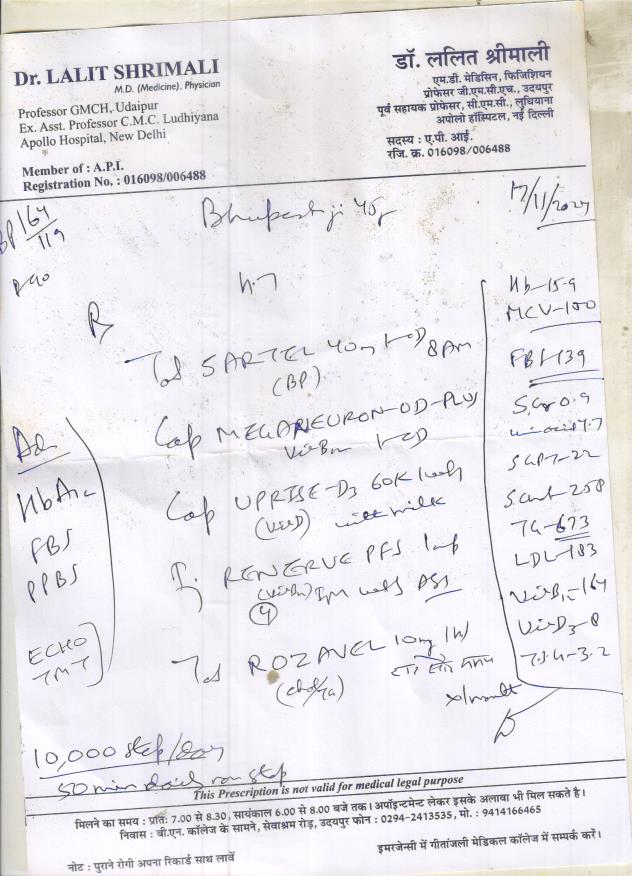 Dr. LALIT SHRIMALI
M.D. (Medicine). Physician
Professor GMCH, Udaipur
Ex. Asst. Professor C.M.C. Ludhiyana
Apollo Hospital, New Delhi
Member of : A.P.I.
Registration No. : 016098/006488
डॉ. ललित श्रीमाली
एम.डी. मेडिसिन, फिजिशियन
प्रोफेसर जी.एम.सी.एच., उदयपुर
पूर्व सहायक प्रोफेसर, सी.एम.सी., लुधियाना
अपोलो हॉस्पिटल, नई दिल्ली
सदस्य : ए.पी.आई.
रजि. क्र. 016098/006488
BP 164/119
Rx
Tab SARTEL 40m 8 AM
(BP)
Cap MEGANEURON-OD-PLUS
Cap UPRISE-D3 60K
with milk
RENERVE PFS
4
Tab ROZAVEL 10mg
Adv
HbA1c
FBS
PPBS
ECHO
TMT
Hb-15.9
MCV-100
FBS-139
S.Cr 0.9
SGPT-22
258
TG-673
LDL-183
Vit B12-164
Vit D3-8
T.S.H-3.2
10,000 step/day
50 min daily non stop
This Prescription is not valid for medical legal purpose
मिलने का समय : प्रातः 7.00 से 8.30, सायंकाल 6.00 से 8.00 बजे तक। अपॉइन्टमेन्ट लेकर इसके अलावा भी मिल सकते है।
निवास : बी.एन. कॉलेज के सामने, सेवाश्रम रोड़, उदयपुर फोन : 0294-2413535, मो. : 9414166465
इमरजेन्सी में गीतांजली मेडिकल कॉलेज में सम्पर्क करें।
नोट : पुराने रोगी अपना रिकार्ड साथ लावें